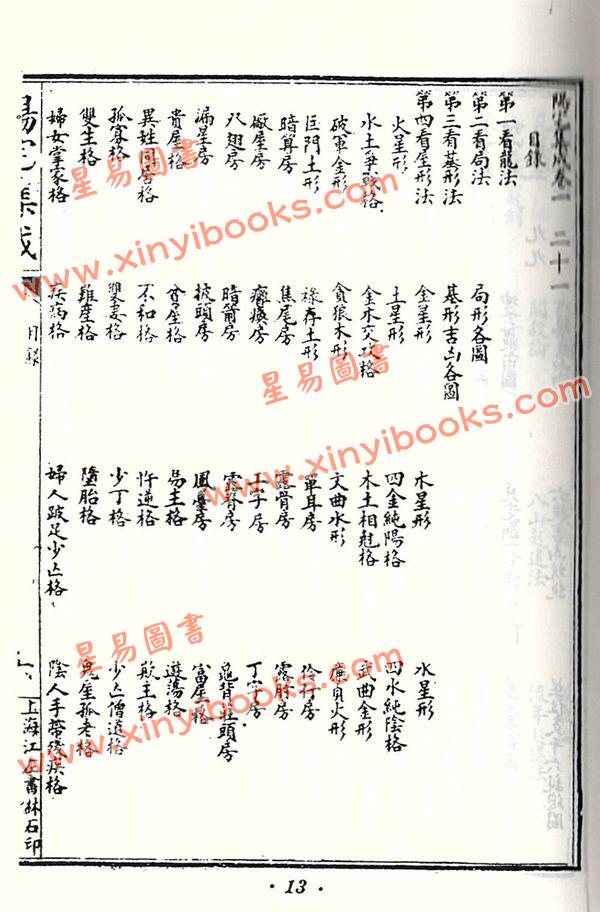 陽宅集成卷一 二十一
目錄
第一看龍法
第二看局法 局形各圖
第三看基形法 基形吉凶各圖
第四看屋形法
火星形 金星形 木星形 水星形
水土爭戰格 土星形 四金純陽格 四水純陰格
破軍金形 金木交攻格 木土相尅格 武曲金形
巨門土形 貪狼木形 文曲水形 廉貞火形
暗算房 祿存土形 單耳房
廠屋房 焦尾房 露骨房 露肘房
八翅房 癱瘓房 工字房 丁字房
漏星房 暗箭房 露脊房 龜背頭房
貴屋格 披頭房 鳳疊房 富屋格
異姓同居格 貧屋格 易主格 遊蕩格
孤寡格 不和格 忤逆格 欺主格
雙生格 雙妻格 少丁格 少亡僧道格
婦女掌家格 難產格 墮胎格 鬼座孤老格
疾病格 婦人跛足少亡格 陰人手帶殘疾格
陽宅集成
目錄
上海江左書林石印
13
星易圖書
www.xinyibooks.com
星易圖書
www.xinyibooks.com
星易圖書
www.xinyibooks.com